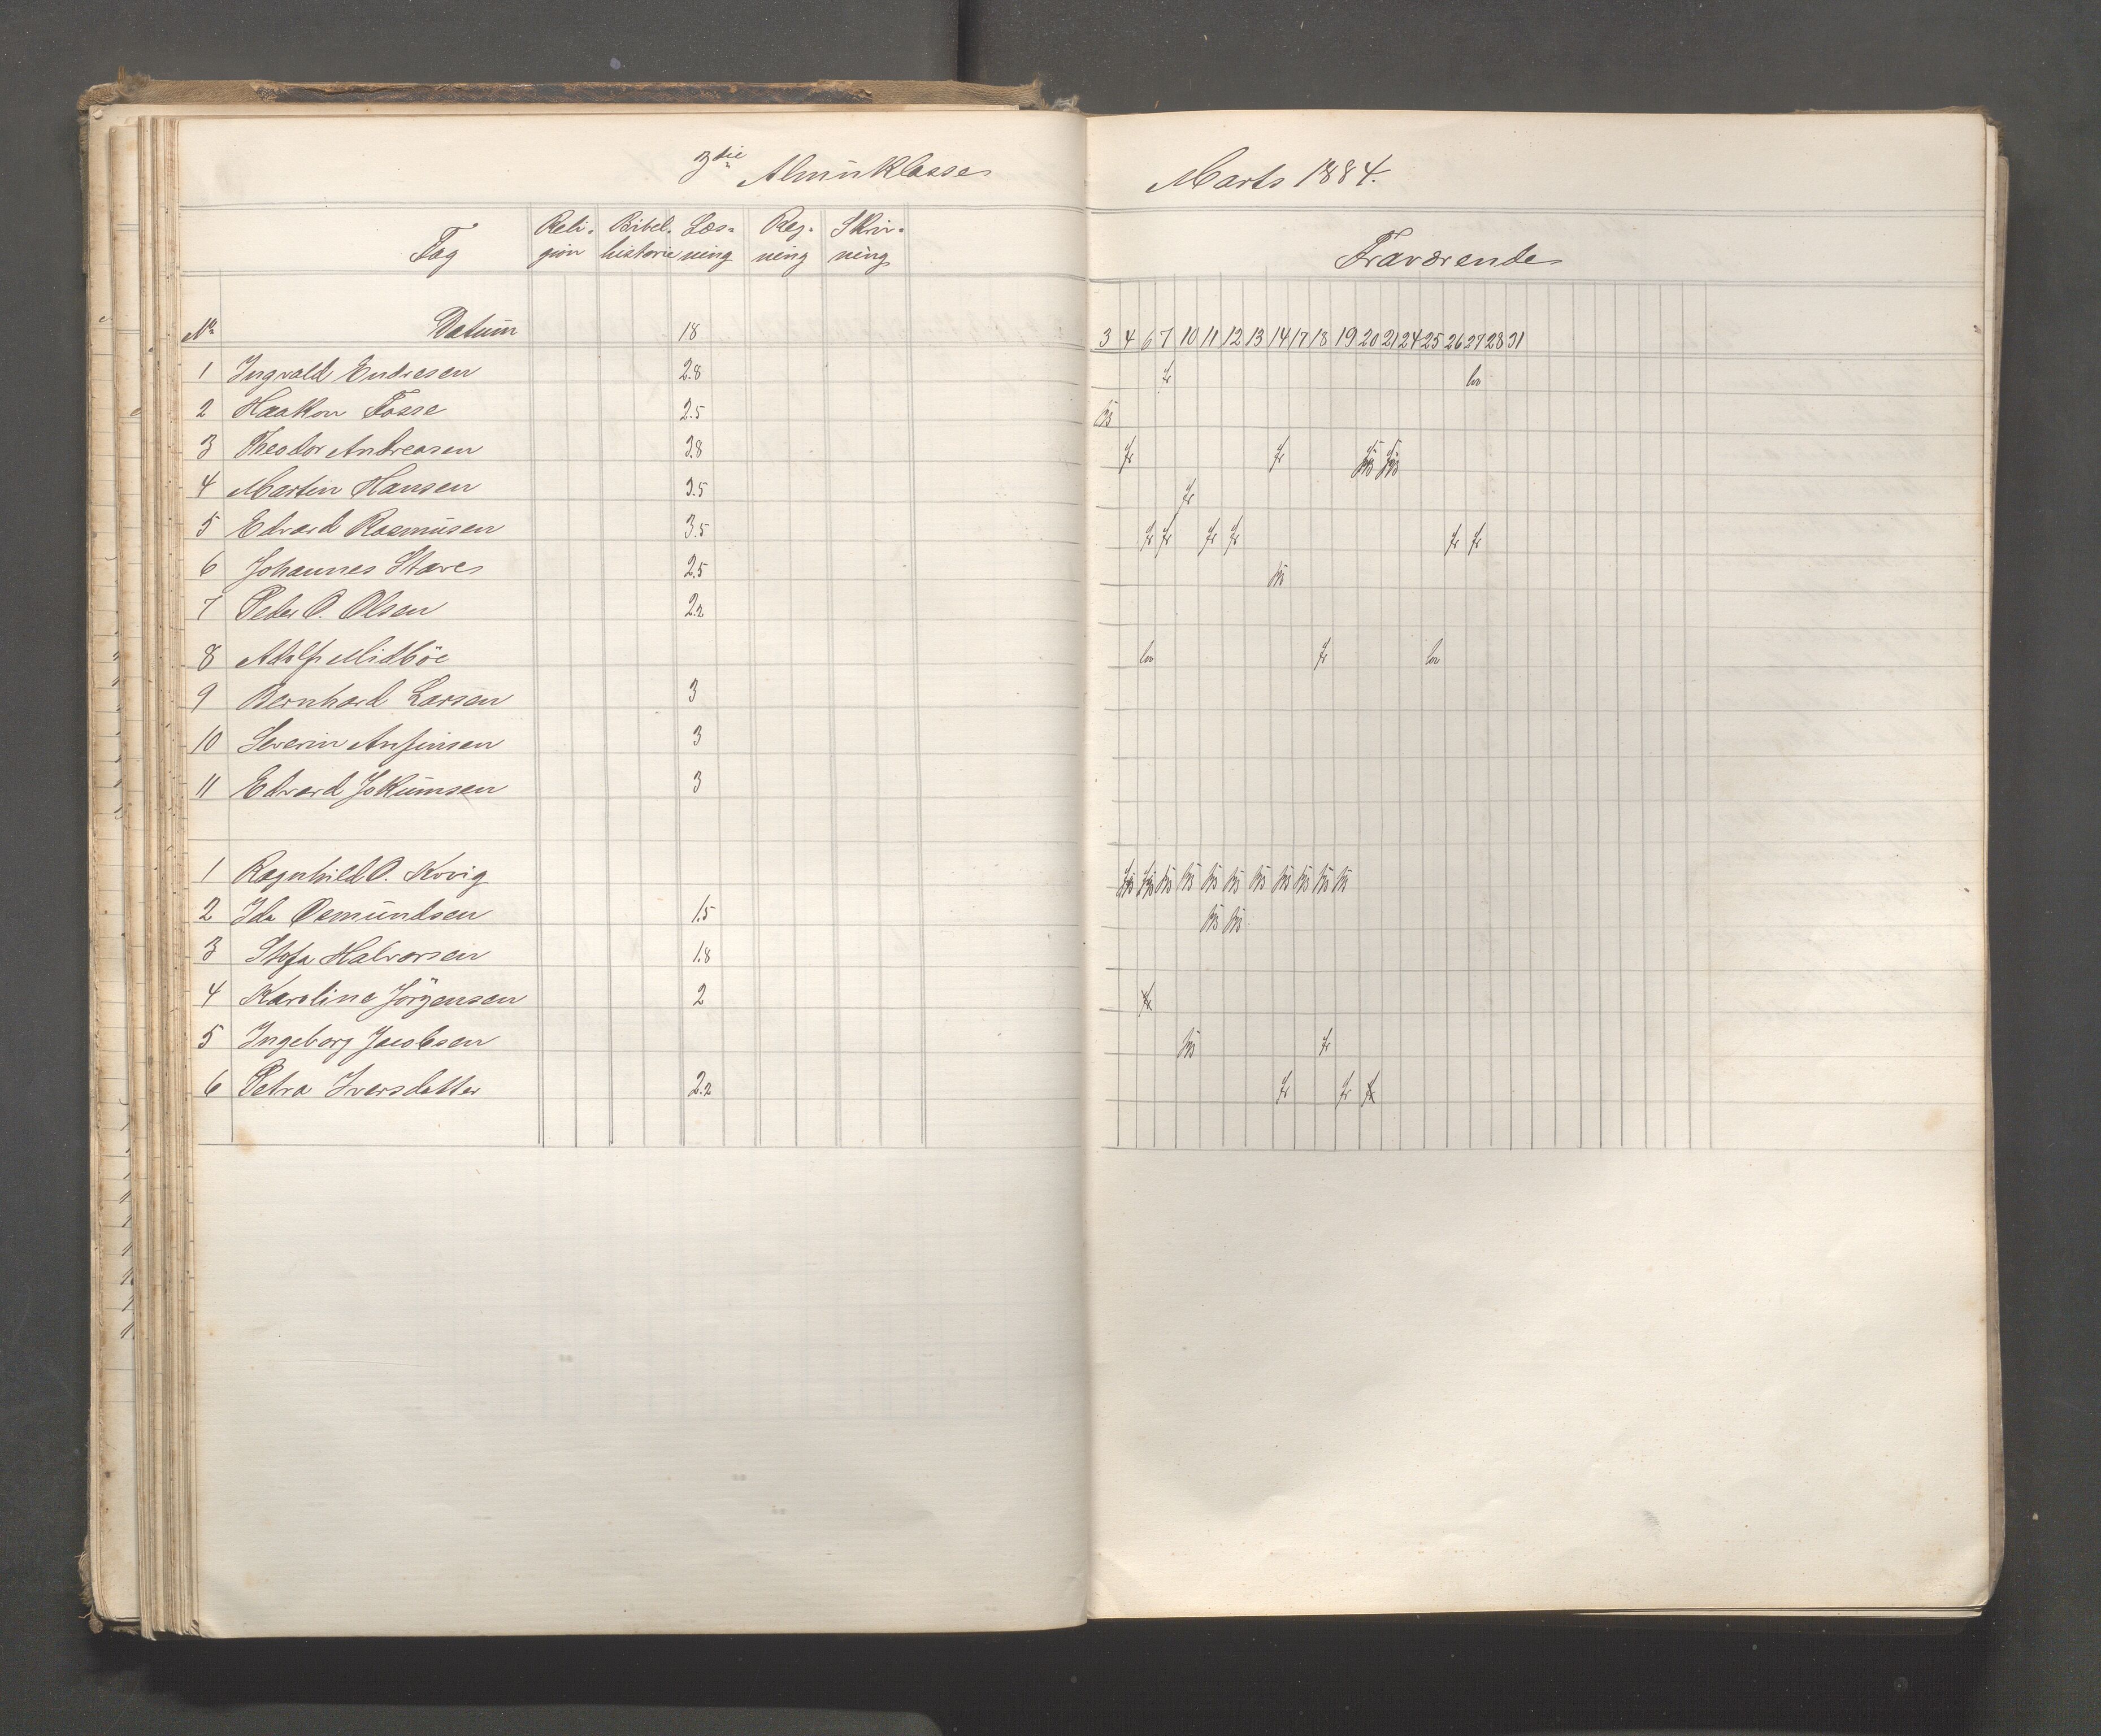 3die Almuklasse
Marts 1884.
Fag Religion Bibelhistorie Læsning Regning Skrivning
Fraværende
No Datum 18
3 4 6 7 10 11 12 13 14 17 18 19 20 21 24 25 26 27 28 31
1 Ingvald Endresen 2.8 fr lov
2 Haakon Fosse 2.5
3 Theodor Andreasen 3.8 fr fr
4 Martin Hansen 3.5 fr
5 Edvard Rasmusen 3.5 fr fr fr fr fr fr
6 Johannes Stave 2.5
7 Peder O. Olsen 2.2
8 Adolf Midböe lov fr lov
9 Bernhard Larsen 3
10 Severin Anfinsen 3
11 Edvard Jokumsen 3
1 Ragnhild O. Kvvig
2 Ida Osmundsen 1.5
3 Halvorsen 1.8
4 Karoline Jörgensen 2
5 Ingeborg Jacobsen fr
6 Petra Iversdatter 2.2 fr fr